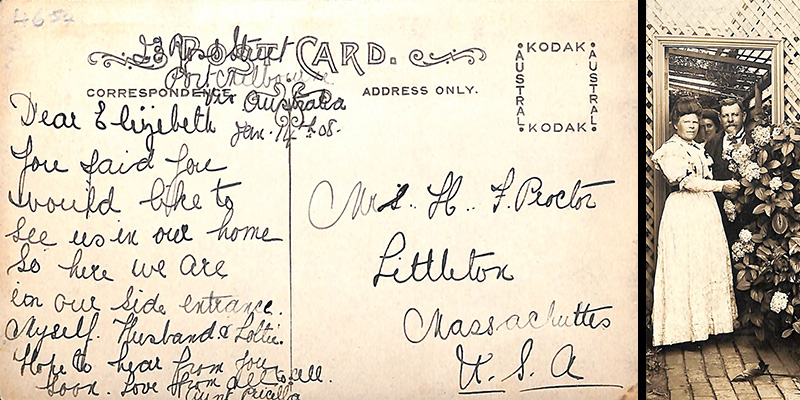 4654
POST CARD.
Street
Port Melbourne
Vic Australia
Jan. 14th 08.
CORRESPONDENCE
ADDRESS ONLY.
KODAK
AUSTRAL
AUSTRAL
KODAK
Dear Elizebeth
You said you
would like to
see us in our home
so here we are
in our side entrance.
Myself. Husband & Lottie.
Hope to hear from you
soon. Love from all to all.
Aunt Pricilla
Mrs. H. F. Proctor
Littleton
Massachuttes
U. S. A